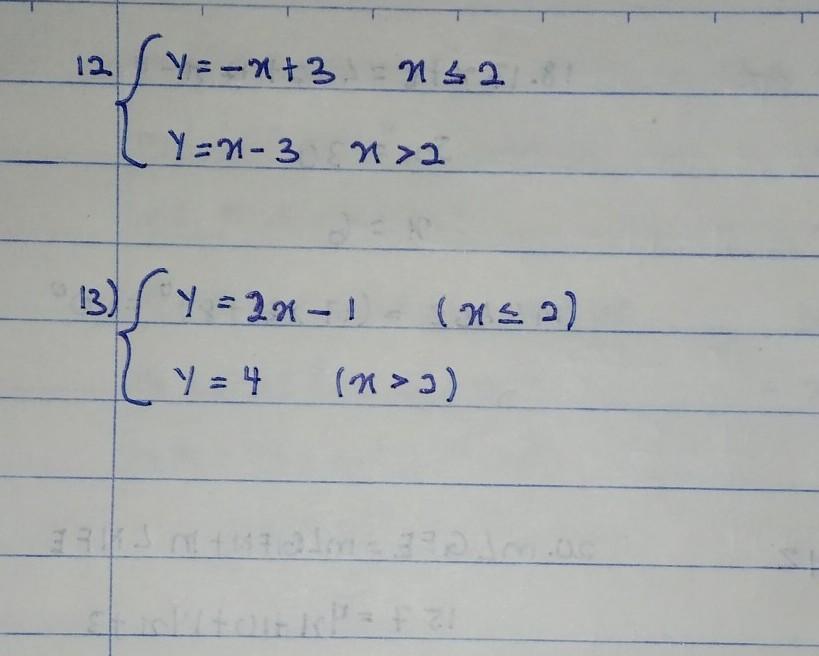 12 { y = -x + 3 x ≤ 2
y = x - 3 x > 2
13) { y = 2x - 1 (x ≤ 2)
y = 4 (x > 2)